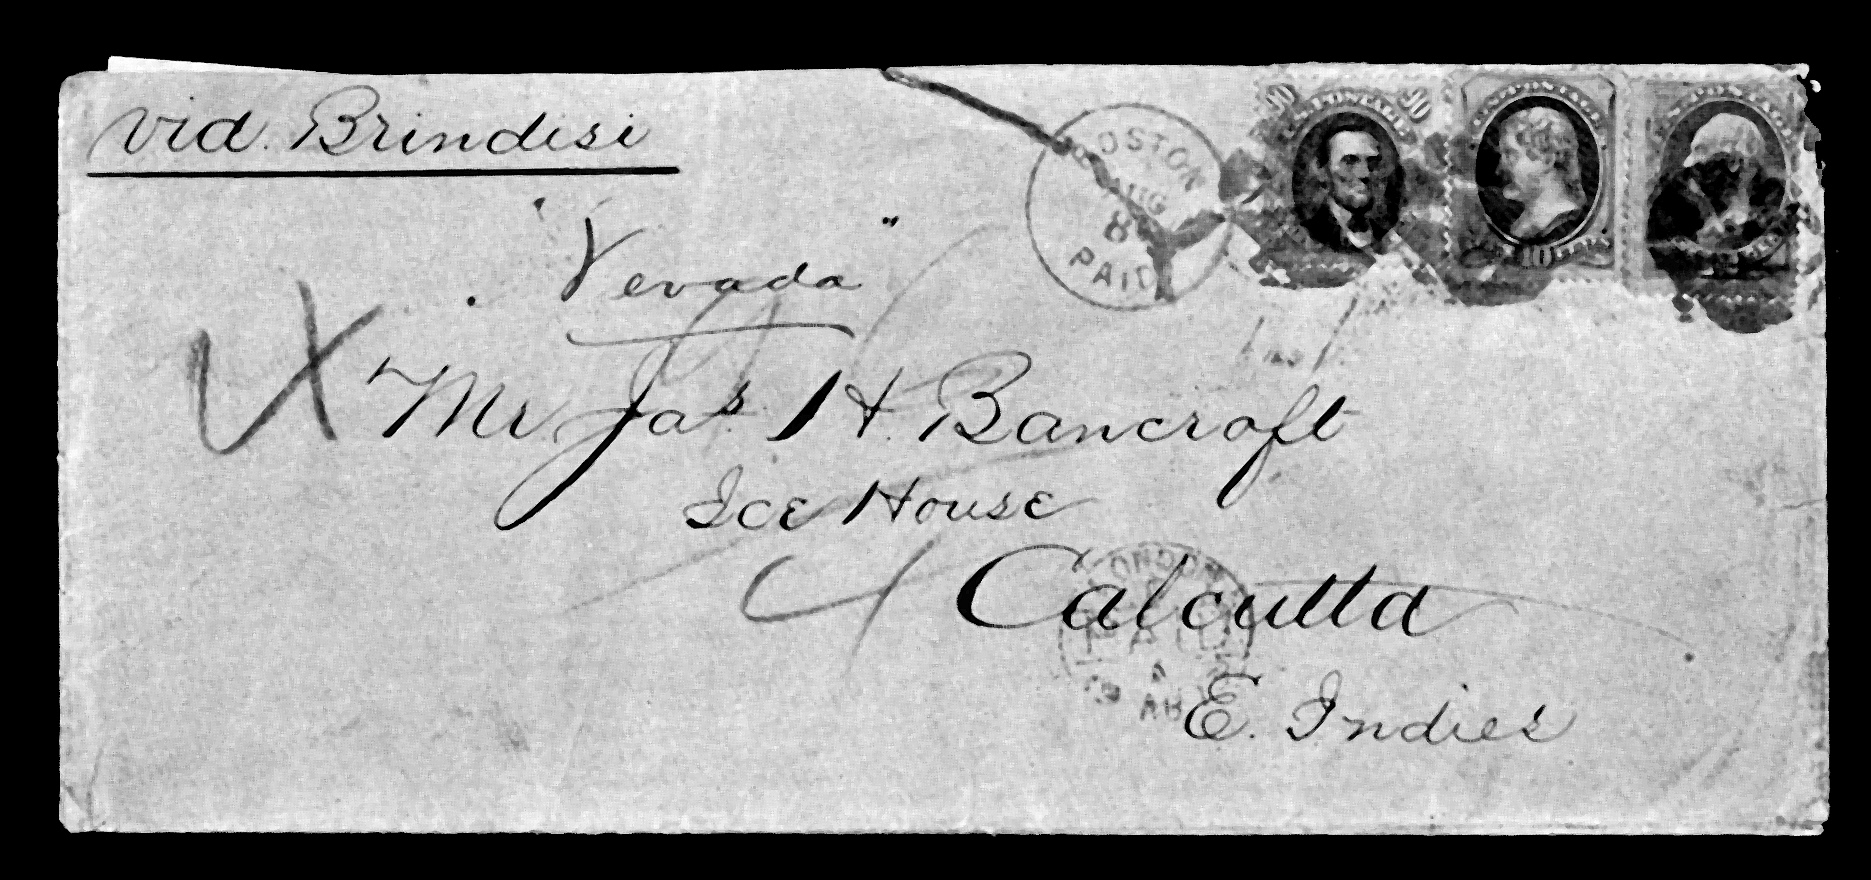 via Brindisi
"Nevada"
BOSTON
AUG
8
PAID
90 POSTAGE 90
10 CENTS
Mr Jas. H. Bancroft
Ice House
Calcutta
E. Indies
LONDON
PAID